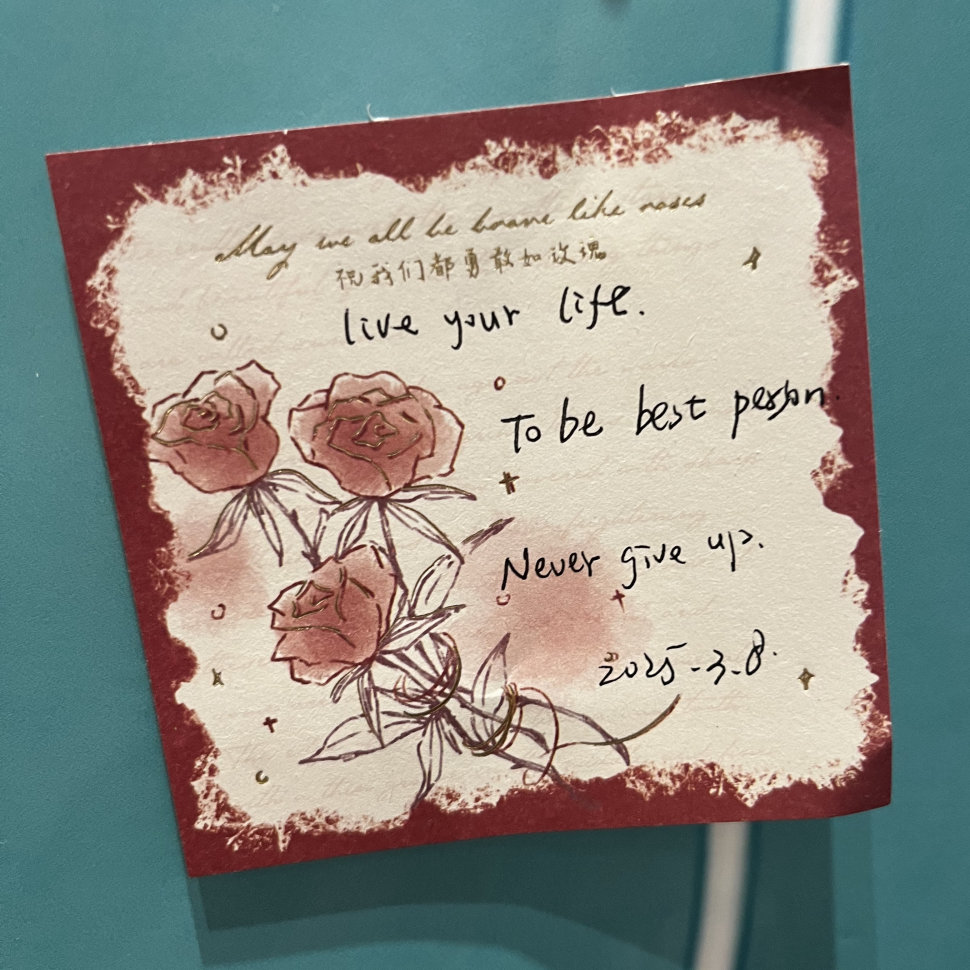 May we all be brave like roses
祝我们都勇敢如玫瑰
live your life.
To be best person.
Never give up.
2025-3-8.